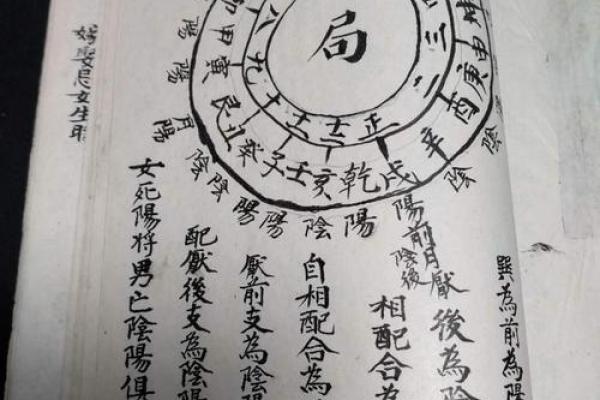 局
三二正十二十一十九八
申庚酉辛戌乾亥壬子癸丑艮寅甲卯
陰陰陽陰陽陽陰陰陽月陽陽
巽為前為陽
陽前陰後
月厭後為陰
相配合為
自相配合為
厭前支為陰
配厭後支為陰陽
女死陽將男亡陰陽俱
嫁娶忌女生